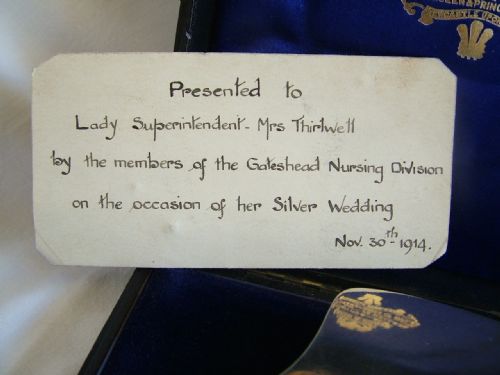 Presented to
Lady Superintendent - Mrs Thirlwell
by the members of the Gateshead Nursing Division
on the occasion of her Silver Wedding
Nov. 30th - 1914.